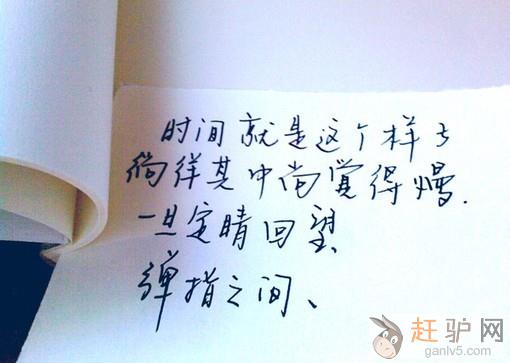 时间就是这个样子
徜徉其中尚觉得慢.
一旦定睛回望、
弹指之间、
赶驴网
ganlv5.com